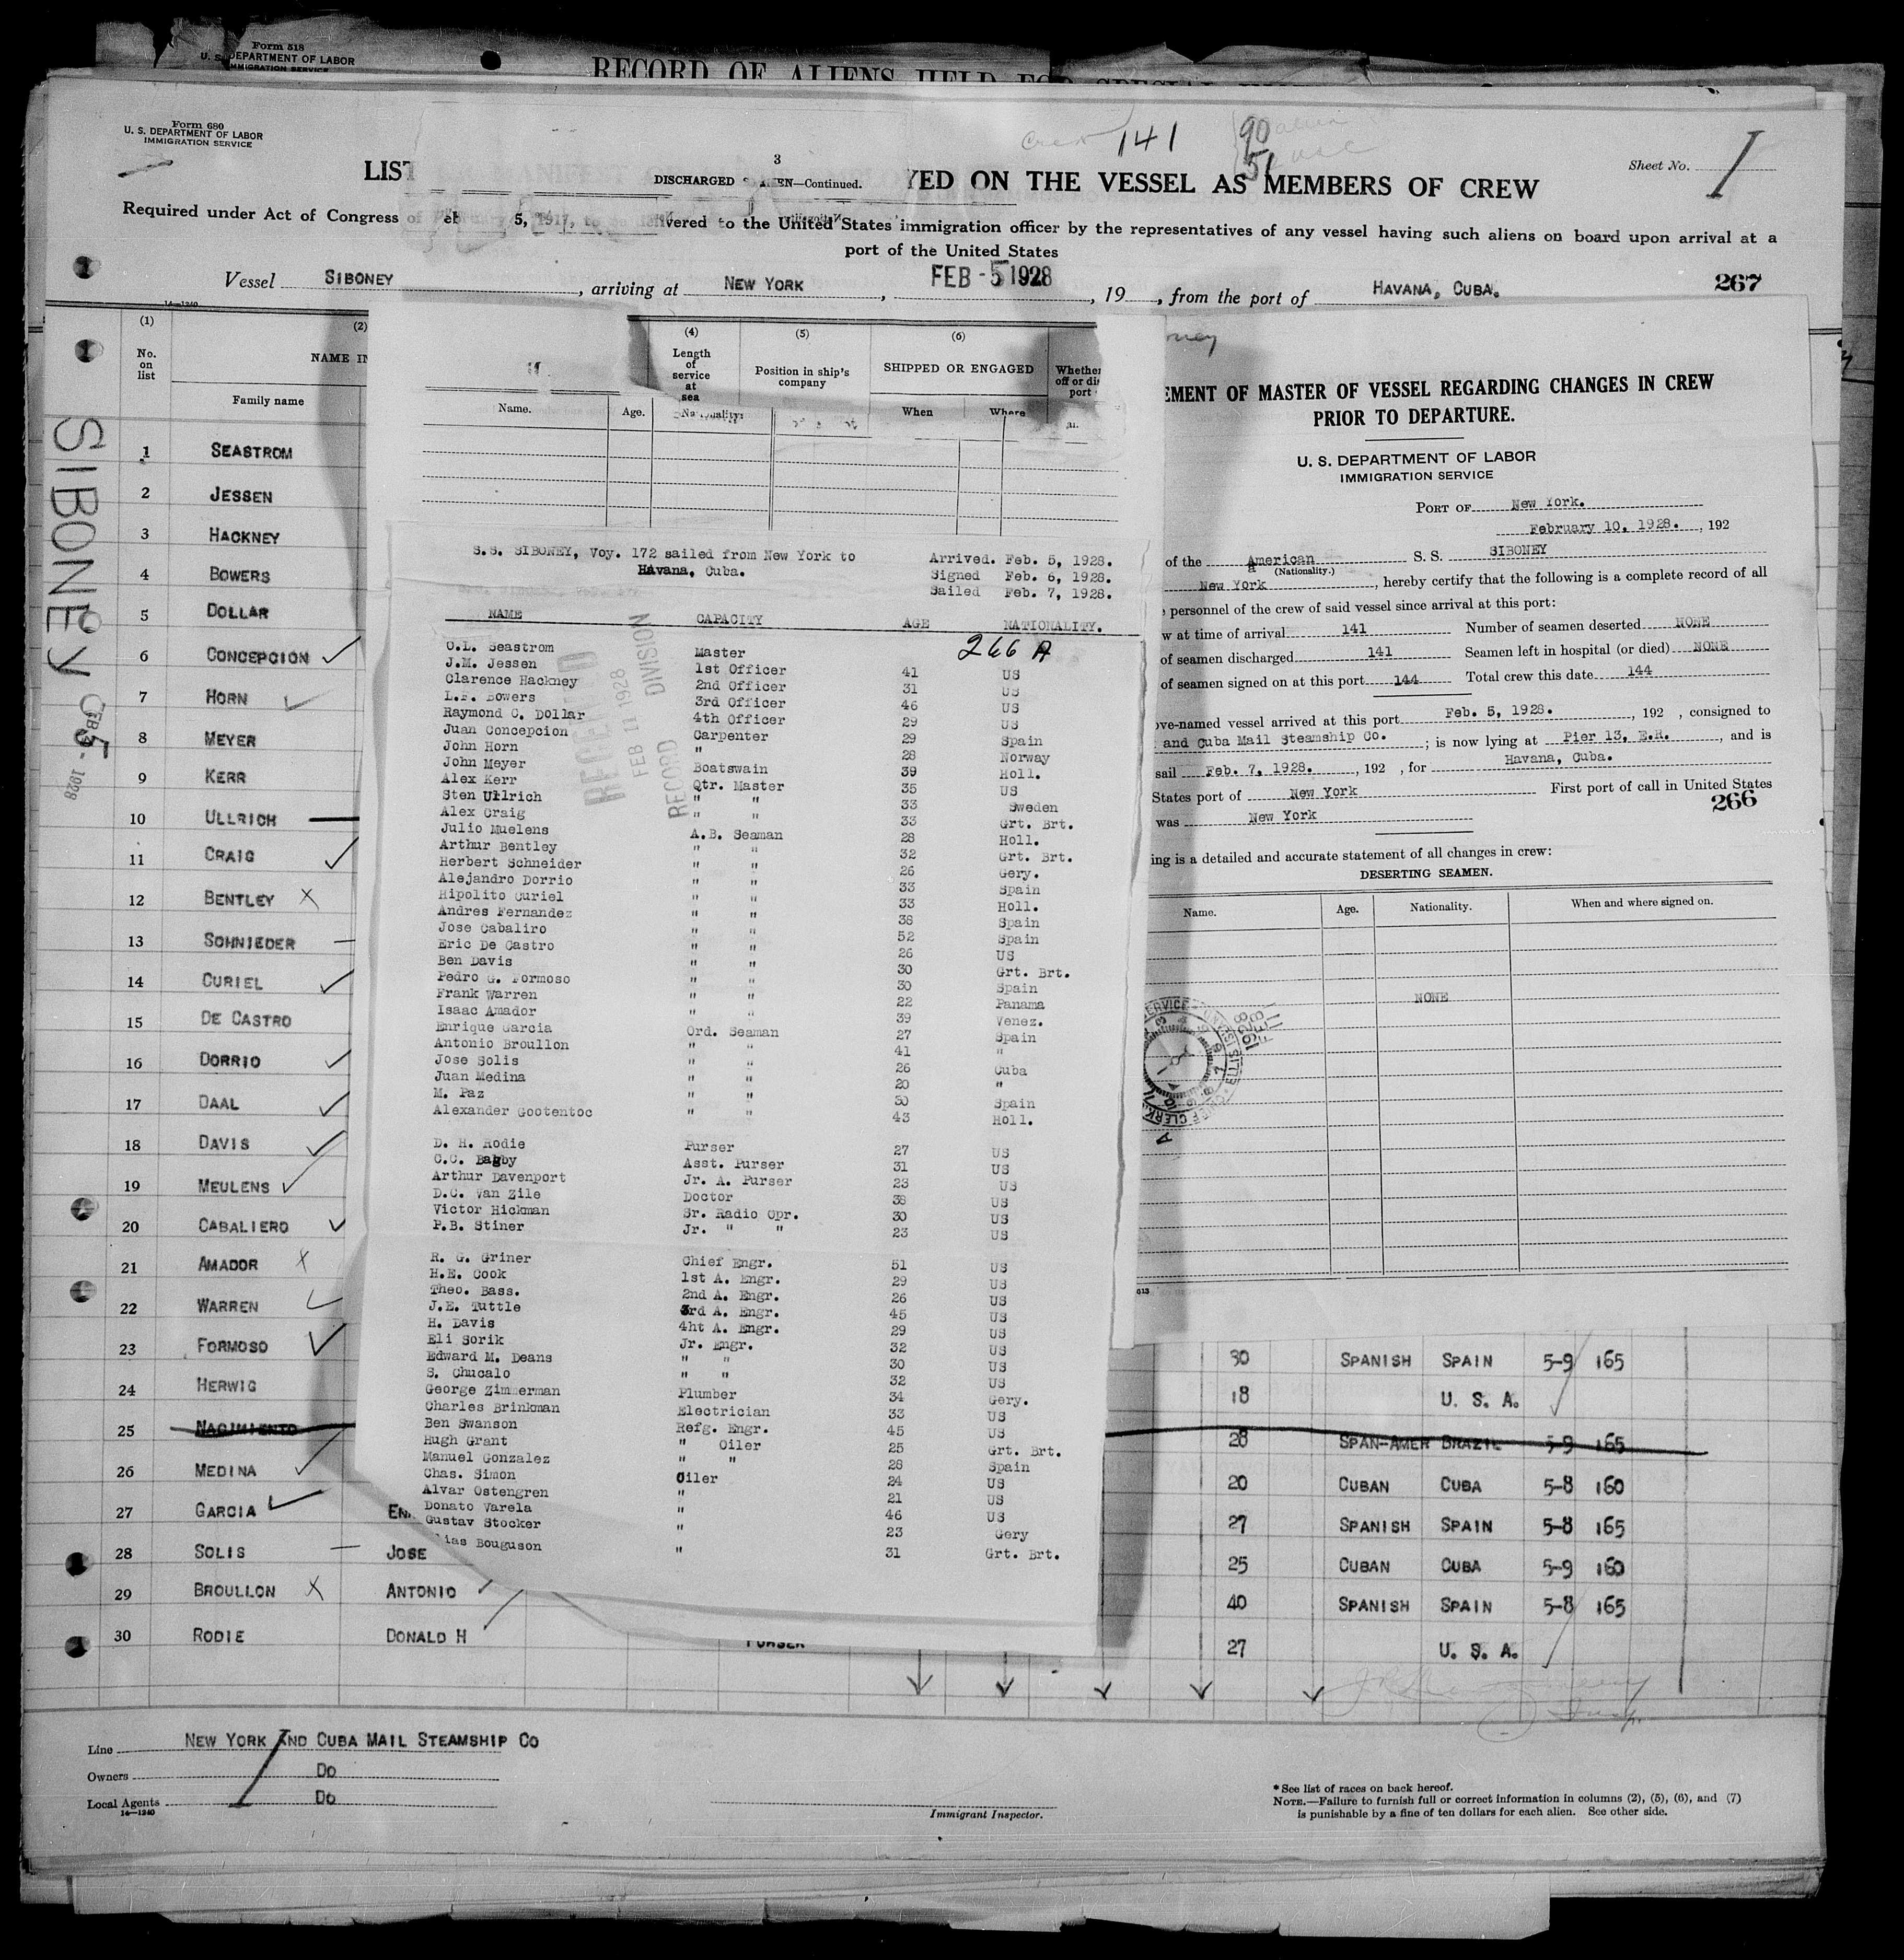 Form 518
U. S. DEPARTMENT OF LABOR
IMMIGRATION SERVICE
RECORD OF ALIENS HELD FOR SPECIAL
Form 680
U. S. DEPARTMENT OF LABOR
IMMIGRATION SERVICE
Crew 141
90
51
Sheet No. 1
LIST
3
DISCHARGED SEAMEN—Continued.
YED ON THE VESSEL AS MEMBERS OF CREW
Required under Act of Congress of February 5, 1917, to be delivered to the United States immigration officer by the representatives of any vessel having such aliens on board upon arrival at a
port of the United States
Vessel SIBONEY, arriving at NEW YORK, FEB - 5 1928, 19, from the port of HAVANA, CUBA.
267
14—1240
(1)
No. on list
(2)
NAME IN
Family name
(4)
Length of service at sea
(5)
Position in ship's company
(6)
SHIPPED OR ENGAGED
When
Where
Name.
Age.
Nationality.
SIBONEY
FEB - 1928
5
1 SEASTROM
2 JESSEN
3 HACKNEY
4 BOWERS
5 DOLLAR
6 CONCEPCION
7 HORN
8 MEYER
9 KERR
10 ULLRICH
11 CRAIG
12 BENTLEY
13 SCHNIEDER
14 CURIEL
15 DE CASTRO
16 DORRIO
17 DAAL
18 DAVIS
19 MEULENS
20 CABALIERO
21 AMADOR
22 WARREN
23 FORMOSO
24 HERWIG
25 NACIMIENTO
26 MEDINA
27 GARCIA
28 SOLIS JOSE
29 BROULLON ANTONIO
30 RODIE DONALD H PURSER
S.S. SIBONEY, Voy. 172 sailed from New York to
Havana, Cuba.
Arrived. Feb. 5, 1928.
Signed Feb. 6, 1928.
Sailed Feb. 7, 1928.
NAME CAPACITY AGE NATIONALITY.
266 A
RECEIVED
FEB 11 1928
RECORD DIVISION
O.L. Seastrom Master 41 US
J.M. Jessen 1st Officer 31 US
Clarence Hackney 2nd Officer 46 US
L.F. Bowers 3rd Officer 29 US
Raymond C. Dollar 4th Officer 29 Spain
Juan Concepcion Carpenter 28 Norway
John Horn " 39 Holl.
John Meyer Boatswain 35 US
Alex Kerr Qtr. Master 33 Sweden
Sten Ullrich " " 33 Grt. Brt.
Alex Craig " " 28 Holl.
Julio Muelens A.B. Seaman 32 Grt. Brt.
Arthur Bentley " " 26 Gery.
Herbert Schneider " " 33 Spain
Alejandro Dorrio " " 33 Holl.
Hipolito Curiel " " 38 Spain
Andres Fernandez " " 52 Spain
Jose Cabaliro " " 26 US
Eric De Castro " " 30 Grt. Brt.
Ben Davis " " 30 Spain
Pedro G. Formoso " " 22 Panama
Frank Warren " " 39 Venez.
Isaac Amador " " 27 Spain
Enrique Garcia Ord. Seaman 41 "
Antonio Broullon " " 26 Cuba
Jose Solis " " 20 "
Juan Medina " " 30 Spain
M. Paz " " 43 Holl.
Alexander Gootentoc " "
D. H. Rodie Purser 27 US
C.C. Bagby Asst. Purser 31 US
Arthur Davenport Jr. A. Purser 23 US
D.C. Van Zile Doctor 38 US
Victor Hickman Sr. Radio Opr. 30 US
P.B. Stiner Jr. " " 23 US
R. G. Griner Chief Engr. 51 US
H.E. Cook 1st A. Engr. 29 US
Theo. Bass. 2nd A. Engr. 26 US
J.E. Tuttle 3rd A. Engr. 45 US
H. Davis 4ht A. Engr. 29 US
Eli Sorik Jr. Engr. 32 US
Edward M. Deans " " 30 US
S. Chucalo " " 32 US
George Zimmerman Plumber 34 Gery.
Charles Brinkman Electrician 33 US
Ben Swanson Refg. Engr. 45 US
Hugh Grant " Oiler 25 Grt. Brt.
Manuel Gonzalez " " 28 Spain
Chas. Simon Oiler 24 US
Alvar Ostengren " 21 US
Donato Varela " 46 US
Gustav Stocker " 23 Gery
lias Bouguson " 31 Grt. Brt.
EMENT OF MASTER OF VESSEL REGARDING CHANGES IN CREW
PRIOR TO DEPARTURE.
U. S. DEPARTMENT OF LABOR
IMMIGRATION SERVICE
PORT OF New York.
February 10, 1928. , 192
of the American S. S. SIBONEY
(Nationality.)
New York, hereby certify that the following is a complete record of all
personnel of the crew of said vessel since arrival at this port:
w at time of arrival 141 Number of seamen deserted NONE
of seamen discharged 141 Seamen left in hospital (or died) NONE
of seamen signed on at this port 144 Total crew this date 144
ove-named vessel arrived at this port Feb. 5, 1928. , 192 , consigned to
and Cuba Mail Steamship Co. ; is now lying at Pier 13, E.R. , and is
sail Feb. 7, 1928. , 192 , for Havana, Cuba.
States port of New York First port of call in United States
was New York
266
ing is a detailed and accurate statement of all changes in crew:
DESERTING SEAMEN.
Name. Age. Nationality. When and where signed on.
NONE
CHIEF CLERK ELLIS ISL
1928 FEB 11
30 SPANISH SPAIN 5-9 165
18 U. S. A.
28 SPAN-AMER BRAZIL 5-9 165
20 CUBAN CUBA 5-8 160
27 SPANISH SPAIN 5-8 165
25 CUBAN CUBA 5-9 160
40 SPANISH SPAIN 5-8 165
27 U. S. A.
Line NEW YORK AND CUBA MAIL STEAMSHIP CO
Owners DO
Local Agents DO
14—1240
Immigrant Inspector.
* See list of races on back hereof.
NOTE.—Failure to furnish full or correct information in columns (2), (5), (6), and (7)
is punishable by a fine of ten dollars for each alien. See other side.